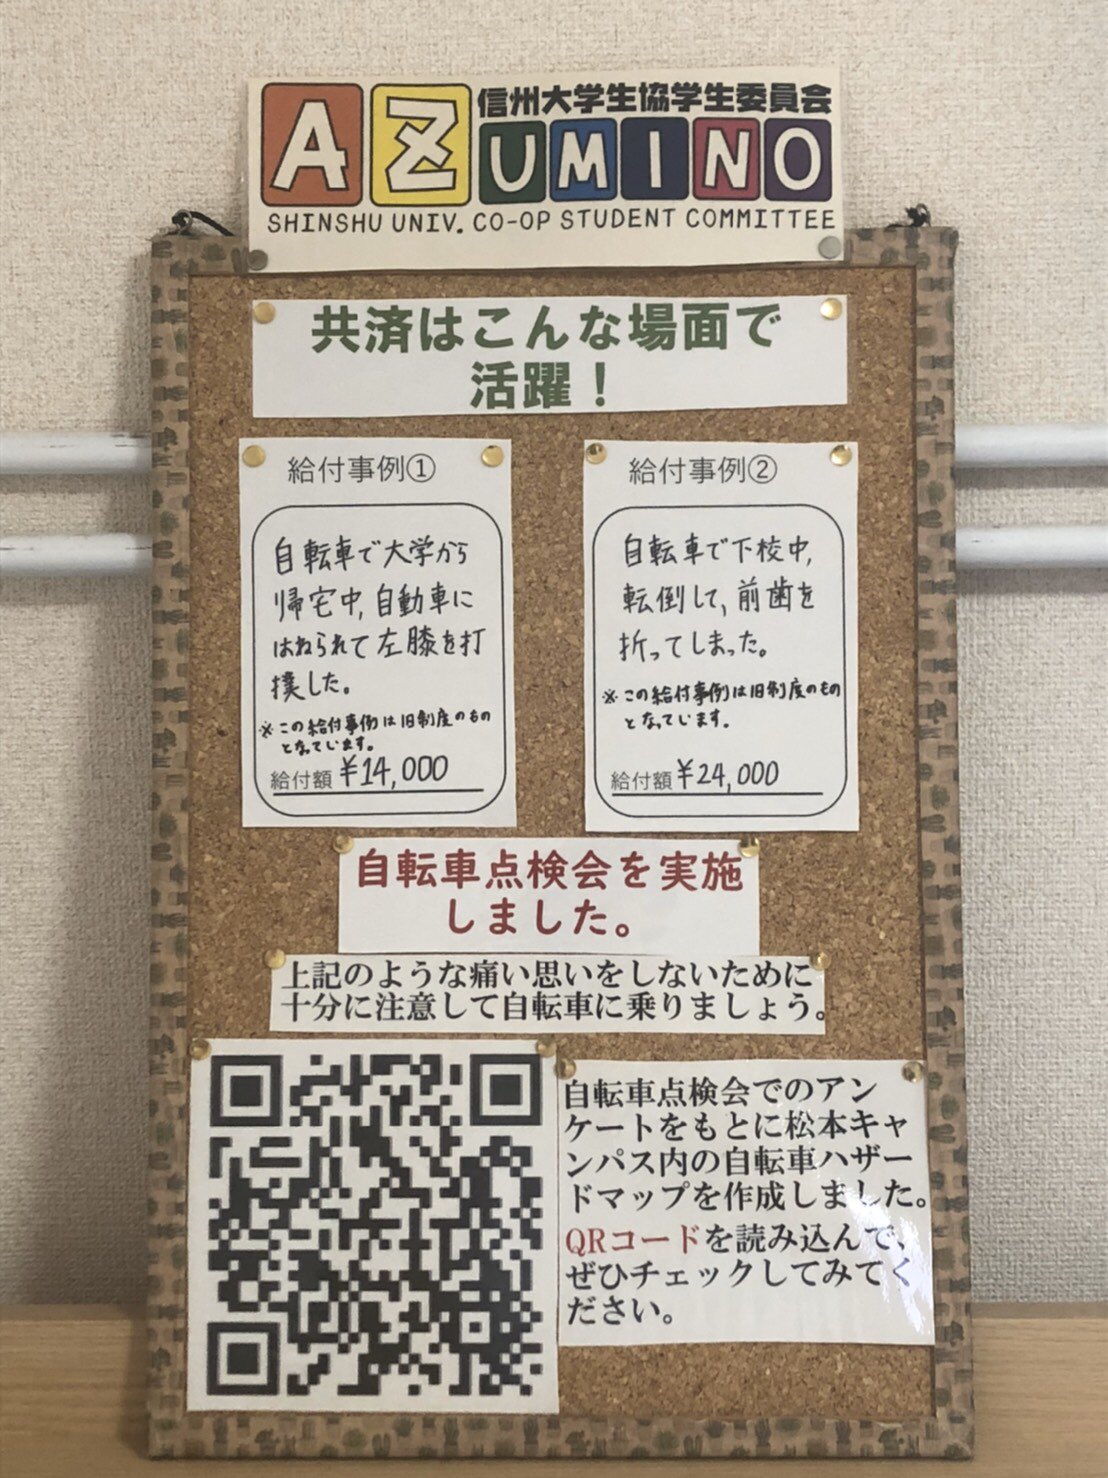 信州大学生協学生委員会
AZUMINO
SHINSHU UNIV. CO-OP STUDENT COMMITTEE
共済はこんな場面で
活躍！
給付事例①
自転車で大学から
帰宅中,自動車に
はねられて左膝を打
撲した。
※この給付事例は旧制度のもの
となっています。
給付額 ¥14,000
給付事例②
自転車で下校中,
転倒して,前歯を
折ってしまった。
※この給付事例は旧制度のもの
となっています。
給付額 ¥24,000
自転車点検会を実施
しました。
上記のような痛い思いをしないために
十分に注意して自転車に乗りましょう。
自転車点検会でのアン
ケートをもとに松本キャ
ンパス内の自転車ハザー
ドマップを作成しました。
QRコードを読み込んで、
ぜひチェックしてみてく
ださい。